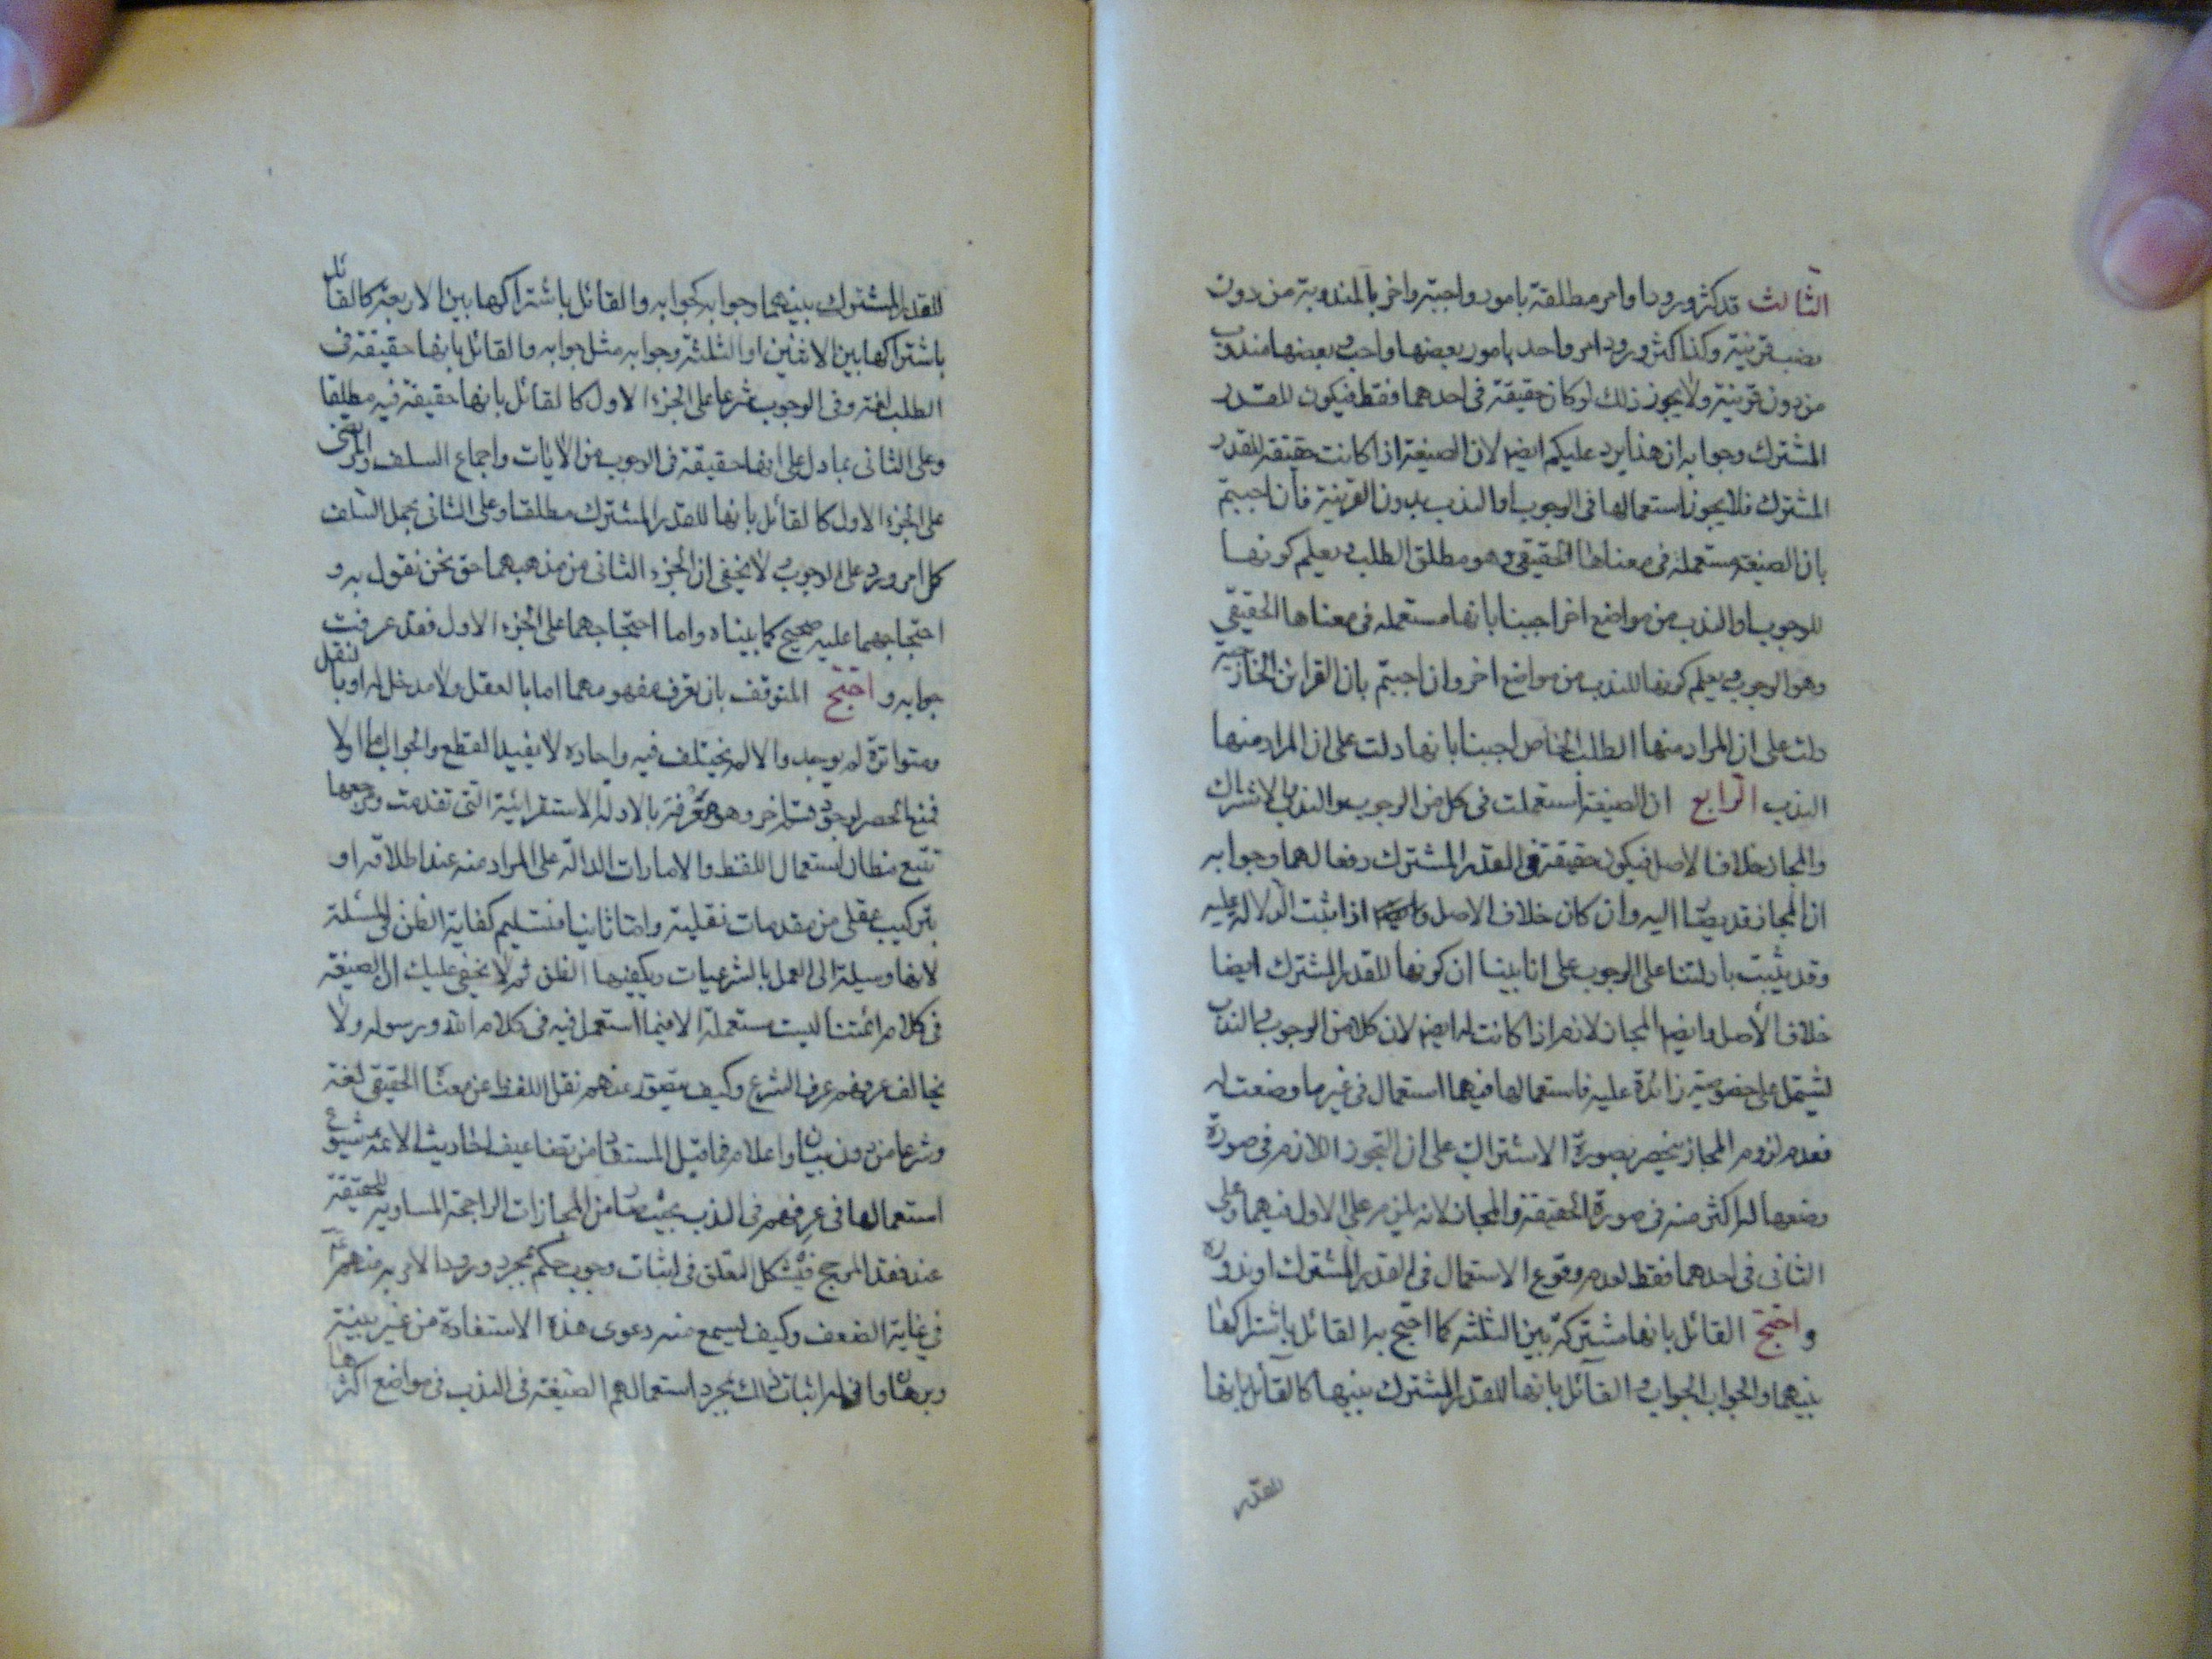 الثالث قد كثر ورود اوامر مطلقة بامور واجبة واخر بالمندوبة من دون
نصب قرينة وكذا كثر ورود امر واحد بامور بعضها واجب وبعضها مندوب
من دون قرينة ولا يجوز ذلك لو كان حقيقة في احدهما فقط فيكون للقدر
المشترك وجوابه ان هذا يرد عليكم ايضا لان الصيغة اذا كانت حقيقة للقدر
المشترك فلا يجوز استعمالها في الوجوب او الندب بدون القرينة فان اجبتم
بان الصيغة مستعملة في معناها الحقيقي وهو مطلق الطلب ويعلم كونها
للوجوب او الندب من مواضع اخر اجبنا بانها مستعمله في معناها الحقيقي
وهو الوجوب ويعلم كونها للندب من مواضع اخر وان اجبتم بان القرائن الخارجية
دلت على ان المراد منها الطلب الخاص اجبنا بانها دلت على ان المراد منها
الندب الرابع ان الصيغة استعملت في كل من الوجوب والندب والاشتراك
والمجاز خلاف الاصل فيكون حقيقة في القدر المشترك دفعا لهما وجوابه
ان المجاز قد يصار اليه وان كان خلاف الاصل اذا ثبت الدلالة عليه
وقد يثبت بادلتنا على الوجوب على انا بينا ان كونها للقدر المشترك ايضا
خلاف الأصل وايضا المجاز لازم اذا كانت له ايضا لان كلا من الوجوب والندب
يشتمل على خصوصية زائدة عليه فاستعمالها فيهما استعمال في غير ما وضعت له
فعدم لزوم المجاز ينحصر بصورة الاشتراك على ان التجوز اللازم في صورة
وضعها له اكثر منه في صورة الحقيقة والمجاز لانه يلزم على الاول فيهما وعلى
الثاني في احدهما فقط لعدم وقوع الاستعمال في القدر المشترك او ندوره
و احتج القائل بانها مشتركة بين الثلثه كما احتج به القائل باشتراكها
بينهما والجواب الجواب و القائل بانها للقدر المشترك بينها كالقائل بانها
للقدر
للقدر المشترك بينهما وجوابه كجوابه والقائل باشتراكها بين الاربعة كالقائل
باشتراكها بين الاثنين او الثلثة وجوابه مثل جوابه والقائل بانها حقيقة في
الطلب لغة وفي الوجوب شرعا على الجزء الاول كالقائل بانها حقيقة فيه مطلقا
وعلى الثاني بما دل على انها حقيقة في الوجوب من الايات واجماع السلف والمرتضى
على الجزء الاول كالقائل بانها للقدر المشترك مطلقا وعلى الثاني بحمل السلف
كل امر ورد على الوجوب و لا يخفى ان الجزء الثاني من مذهبهما حق نحن نقول به و
احتجاجهما عليه صحيح كما بيناه واما احتجاجهما على الجزء الاول فقد عرفت
جوابه و احتج المتوقف بان تعرف مفهومهما اما بالعقل ولا مدخل له او بالنقل
ومتواترة لم يوجد والا لم يختلف فيه واحاده لا يفيد القطع والجواب اما اولا
فمنع الحصر لوجود قسم اخر وهو معرفة بالادلة الاستقرائية التي تقدمت ومرجعها
تتبع مظان استعمال اللفظ والامارات الدالة على المراد منه عند اطلاقه او
بتركيب عقلي من مقدمات نقلية واما ثانيا فنسليم كفاية الظن في المسئلة
لانها وسيلة الى العمل بالشرعيات ويكفيها الظن ثم لا يخفى عليك ان الصيغة
في كلام ائمتنا ليست مستعملة الا فيما استعمل فيه في كلام الله ورسوله ولا
يخالف عرفهم عرف الشرع وكيف يتصور عنهم نقل اللفظ عن معناه الحقيقي لغة
وشرعا من دون بيان واعلام فما قيل المستفاد من تضاعيف احاديث الائمة شيوع
استعمالها في عرفهم في الندب بحيث صار من المجازات الراجحة المساوية للحقيقة
عند فقد المرجح فيشكل التعلق في اثبات وجوب حكم بمجرد ورود الامر به منهم
في غاية الضعف وكيف يسمع منه دعوى هذه الاستفادة من غير بينة
وبرهان وانى له اثبات ذلك بمجرد استعمالهم الصيغة في الندب في مواضع اكثرها